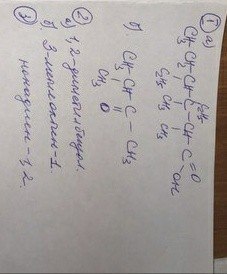 ① а)
C₂H₅
CH₃-CH₂-CH-C-CH-C=O
C₂H₅ CH₃ CH₃ OH
б) CH₃-CH-C-CH₃
CH₃ O
② а) 1,2-диметилбензол.
б) 3-метилоктин-1.
③ нонадиен-1,2.